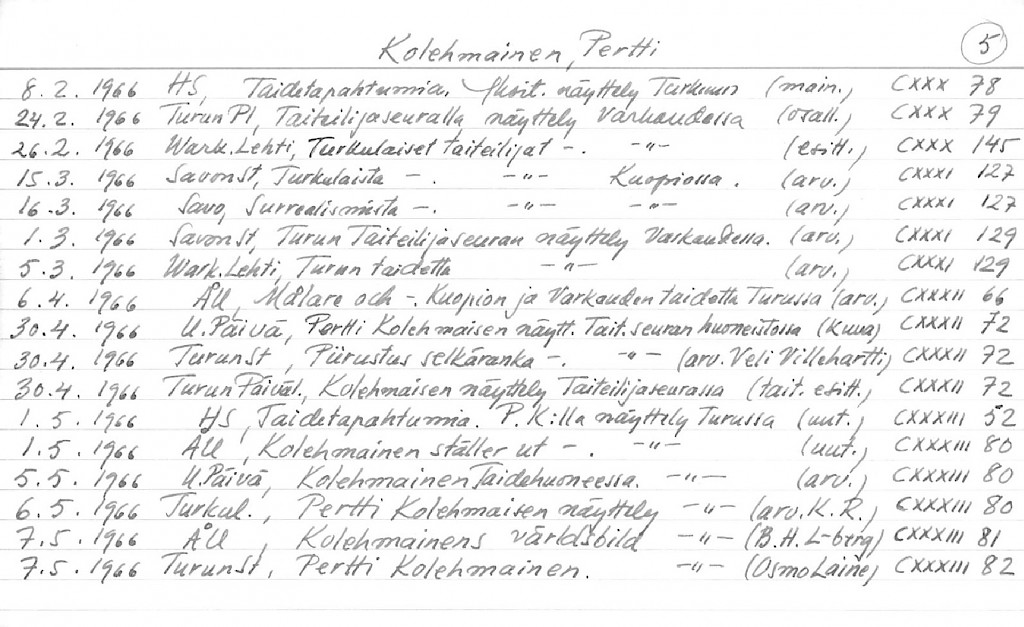 Kolehmainen, Pertti 5
8.2. 1966 HS, Taidetapahtumia, näyttely Turkuun (main.) CXXX 78
24.2. 1966 Turun Pl, Taiteilijaseuralla näyttely Varkaudessa (osall.) CXXX 79
26.2. 1966 Wark.Lehti, Turkulaiset taiteilijat -. -"- (esitt.) CXXX 145
15.3. 1966 SavonSt, Turkulaista -. -"- Kuopiossa. (arv.) CXXXI 127
16.3. 1966 Savo, Surrealismista -. -"- -"- (arv.) CXXXI 127
1.3. 1966 SavonSt, Turun Taiteilijaseuran näyttely Varkaudessa. (arv.) CXXXI 129
5.3. 1966 Wark.Lehti, Turun taidetta -"- (arv.) CXXXI 129
6.4. 1966 ÅU, Målare och -. Kuopion ja Varkauden taidetta Turussa (arv.) CXXXII 66
30.4. 1966 U.Päivä, Pertti Kolehmaisen näytt. Tait.seuran huoneistossa (kuva) CXXXII 72
30.4. 1966 TurunSt, Piirustus selkäranka -. -"- (arv. Veli Villehartti) CXXXII 72
30.4. 1966 Turun Päivül., Kolehmaisen näyttely Taiteilijaseurassa (tait. esitt.) CXXXII 72
1.5. 1966 HS, Taidetapahtumia. P.K:lla näyttely Turussa (uut.) CXXXIII 52
1.5. 1966 ÅU, Kolehmainen ställer ut -. -"- (uut.) CXXXIII 80
5.5. 1966 U.Päivä, Kolehmainen Taidehuoneessa. -"- (arv.) CXXXIII 80
6.5. 1966 Turkul., Pertti Kolehmaisen näyttely -"- (arv. K.R.) CXXXIII 80
7.5. 1966 ÅU, Kolehmainens världsbild -"- (B.H. L-berg) CXXXIII 81
7.5. 1966 TurunSt, Pertti Kolehmainen. -"- (Osmo Laine) CXXXIII 82